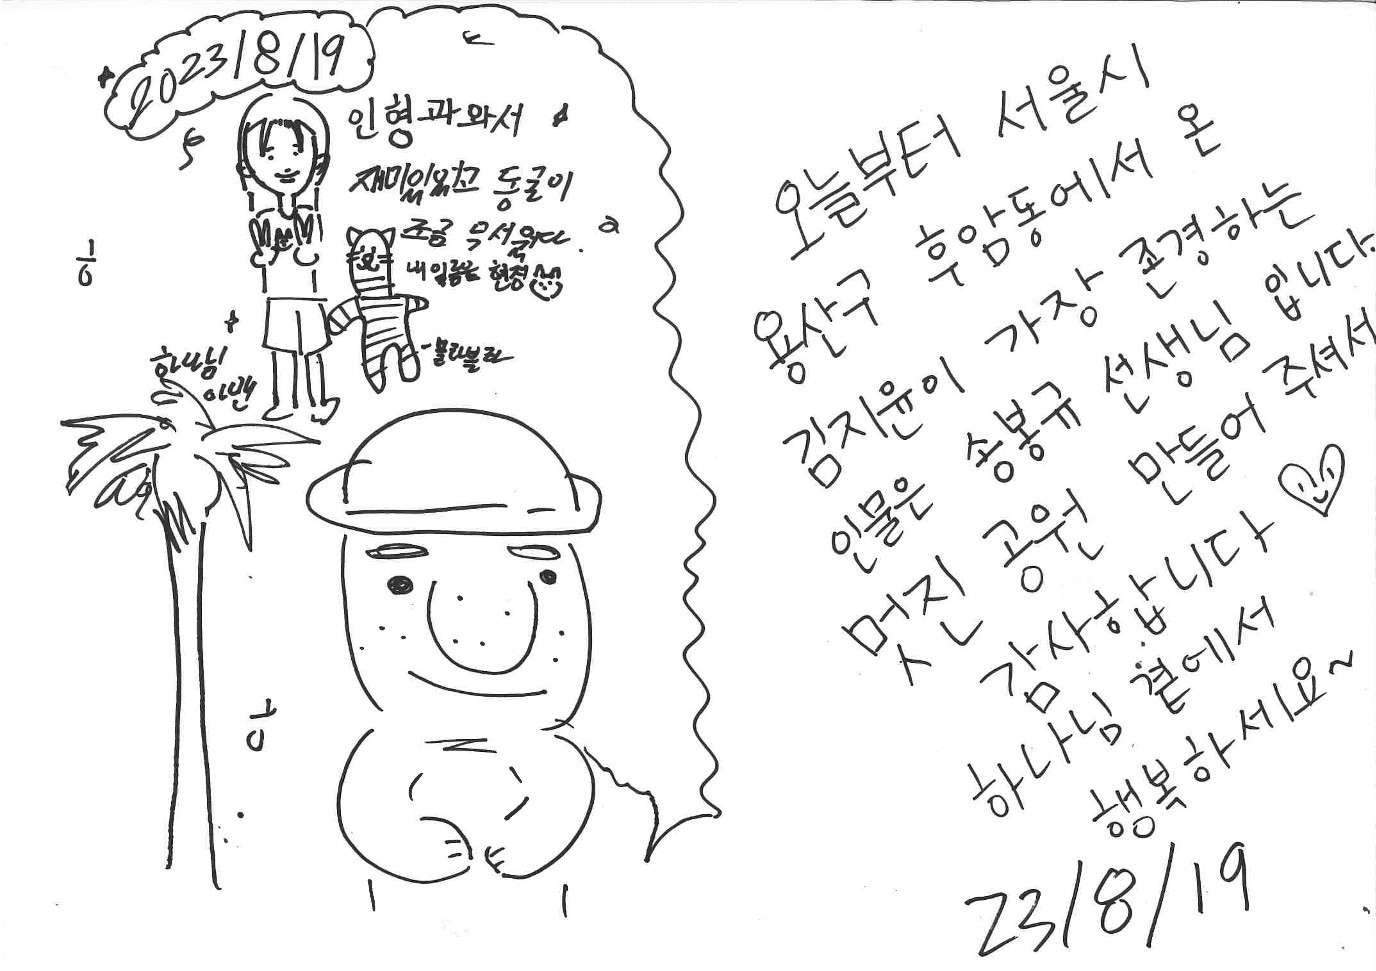 2023/8/19
인형과 와서
재미있었고 동굴이
조금 무서웠다.
내 이름은 현정
블라블라
하나님
아멘
오늘부터 서울시
용산구 후암동에서 온
김지윤이 가장 존경하는
인물은 송봉규 선생님 입니다.
멋진 공원 만들어 주셔서
감사합니다
하나님 곁에서
행복하세요~
23/8/19